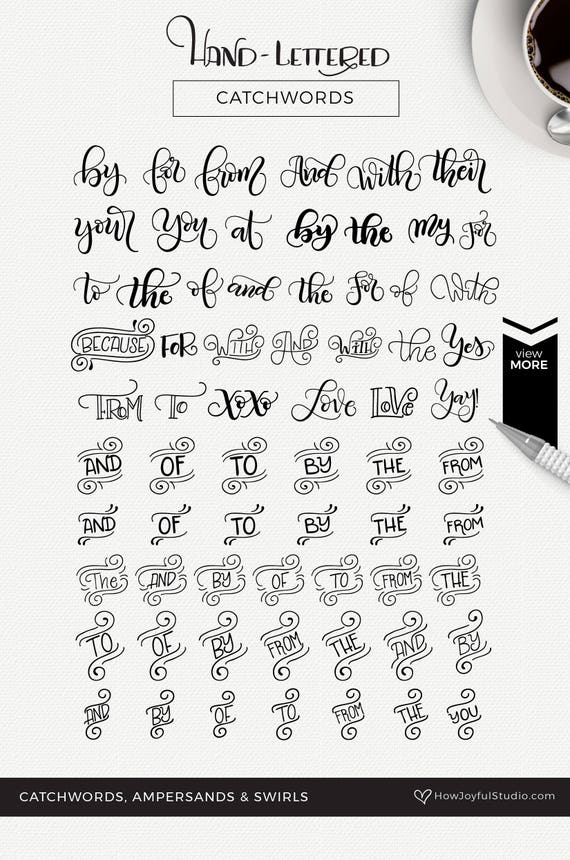 HAND-LETTERED
CATCHWORDS
by for from And with their
your You at by the my for
to the of and the For of With
view
MORE
BECAUSE FOR WITH AND WITH the Yes
FROM TO XOXO Love LOVE Yay!
AND OF TO BY THE FROM
AND OF TO BY THE FROM
The AND BY OF TO FROM THE
TO OF BY FROM THE AND BY
AND BY OF TO FROM THE YOU
CATCHWORDS, AMPERSANDS & SWIRLS
HowJoyfulStudio.com